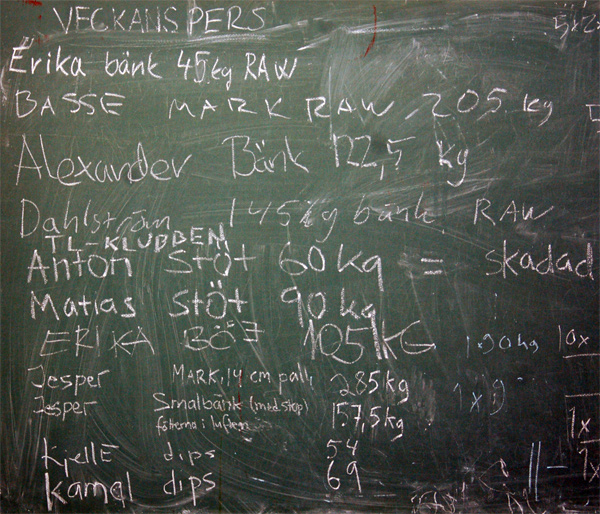 VECKANS PERS
Erika bänk 45kg RAW
BASSE MARK RAW 205 kg
Alexander Bänk 122,5 kg
Dahlström 145kg bänk RAW
TL-KLUBBEN
Anton Stöt 60kg = skadad
Matias Stöt 90kg
ERIKA BÖJ 105KG 1.90kg 10x
Jesper MARK, 14 cm pall, 285kg 1x9
Jesper Smalbänk (med stop) 157,5kg 1x
fötterna i luften
KjellE dips 54 1x
Kamal dips 69